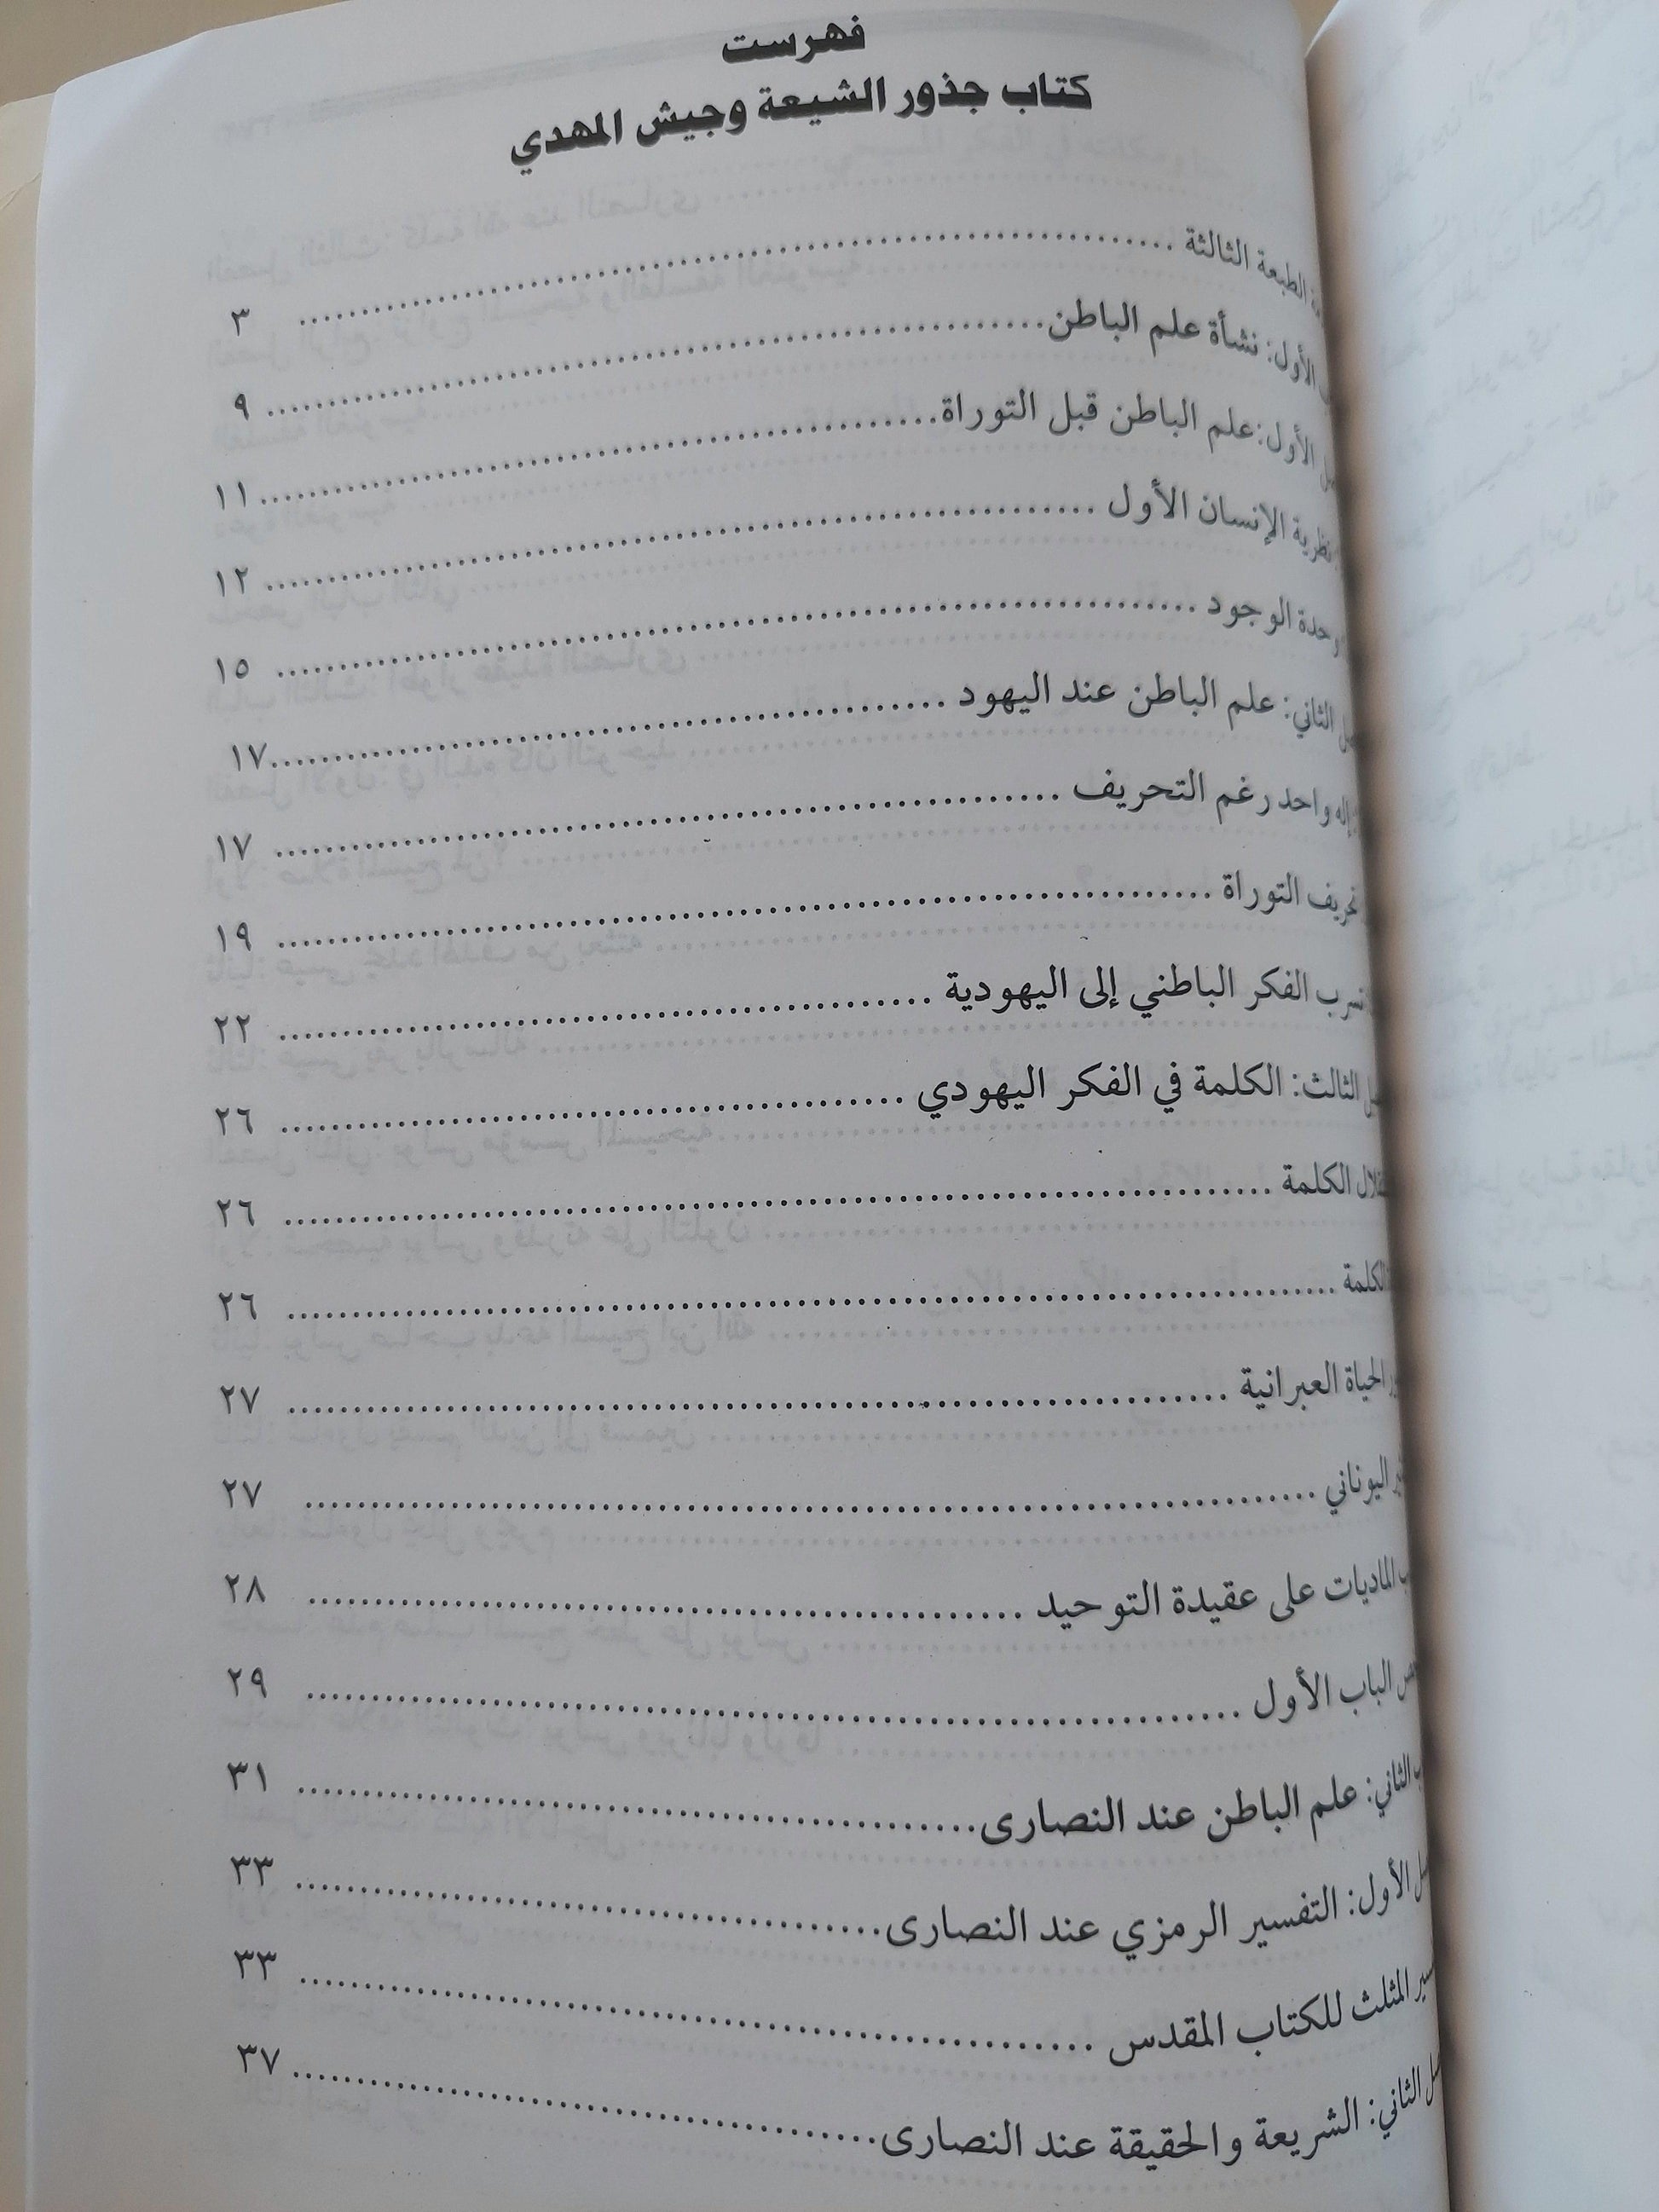 فهرست
كتاب جذور الشيعة وجيش المهدي
الطبعة الثالثة ........ ٣
الأول: نشأة علم الباطن ........ ٩
الأول: علم الباطن قبل التوراة ........ ١١
نظرية الإنسان الأول ........ ١٢
وحدة الوجود ........ ١٥
الثاني: علم الباطن عند اليهود ........ ١٧
إله واحد رغم التحريف ........ ١٧
تحريف التوراة ........ ١٩
تسرب الفكر الباطني إلى اليهودية ........ ٢٢
الثالث: الكلمة في الفكر اليهودي ........ ٢٦
الكلمة ........ ٢٦
الكلمة ........ ٢٦
الحياة العبرانية ........ ٢٧
اليوناني ........ ٢٧
الماديات على عقيدة التوحيد ........ ٢٨
الباب الأول ........ ٢٩
الثاني: علم الباطن عند النصارى ........ ٣١
الأول: التفسير الرمزي عند النصارى ........ ٣٣
المثلث للكتاب المقدس ........ ٣٣
الثاني: الشريعة والحقيقة عند النصارى ........ ٣٧